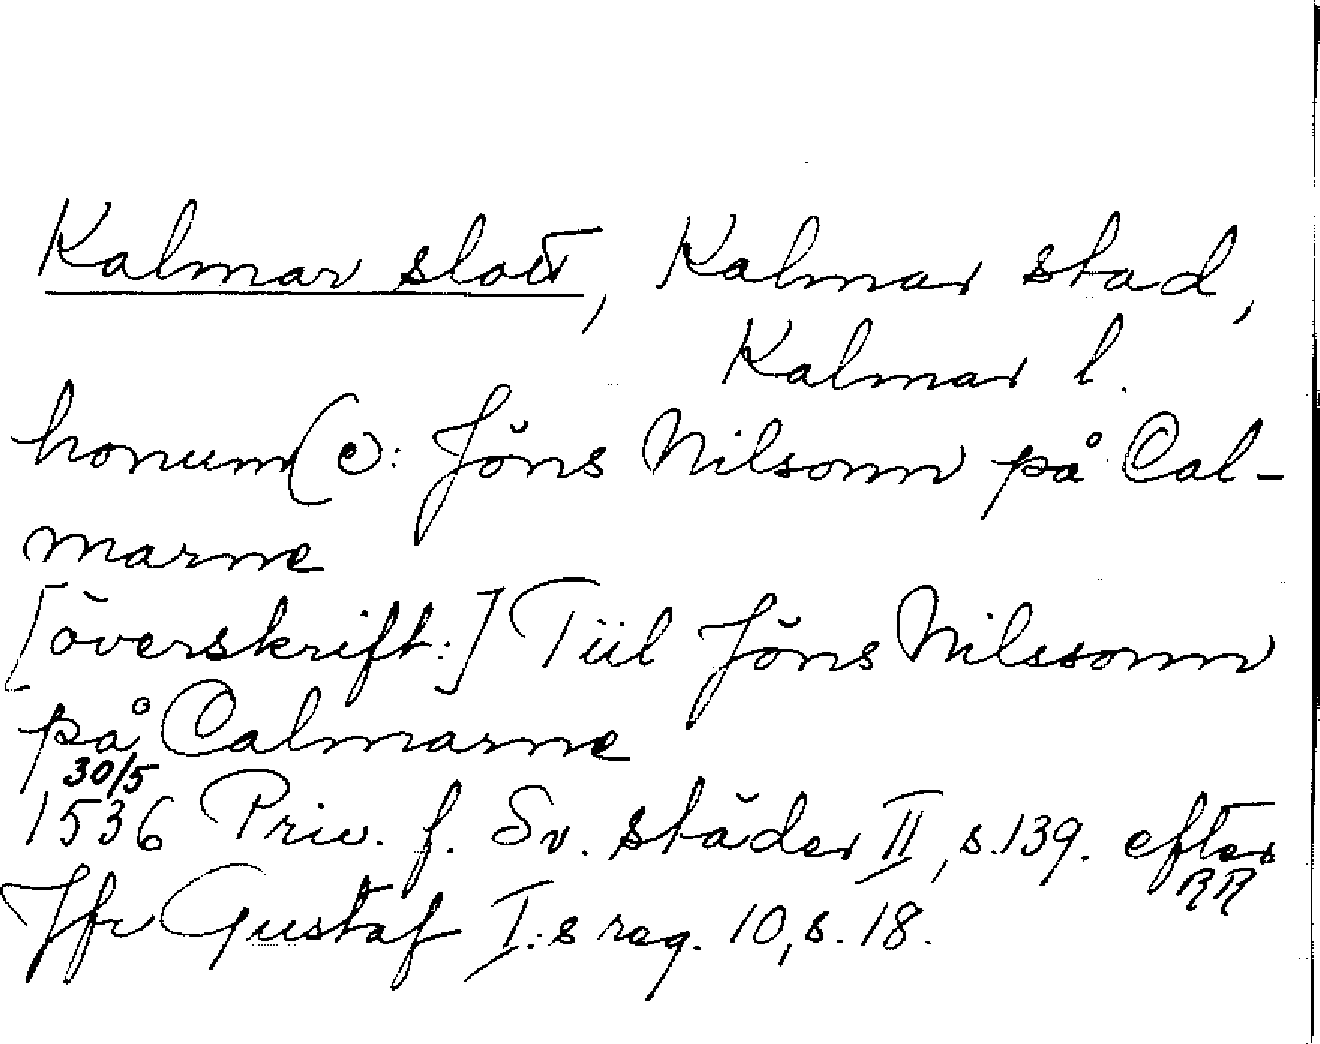 Kalmar slott, Kalmar stad,
Kalmar l.
honum (ɔ: Jöns Nilsonn på Cal-
marne
[överskrift:] Tiil Jöns Nilssonn
på Calmarne
30/5
1536 Priv. f. Sv. städer II, s. 139. efter
RR
Jfr Gustaf I:s reg. 10, s. 18.